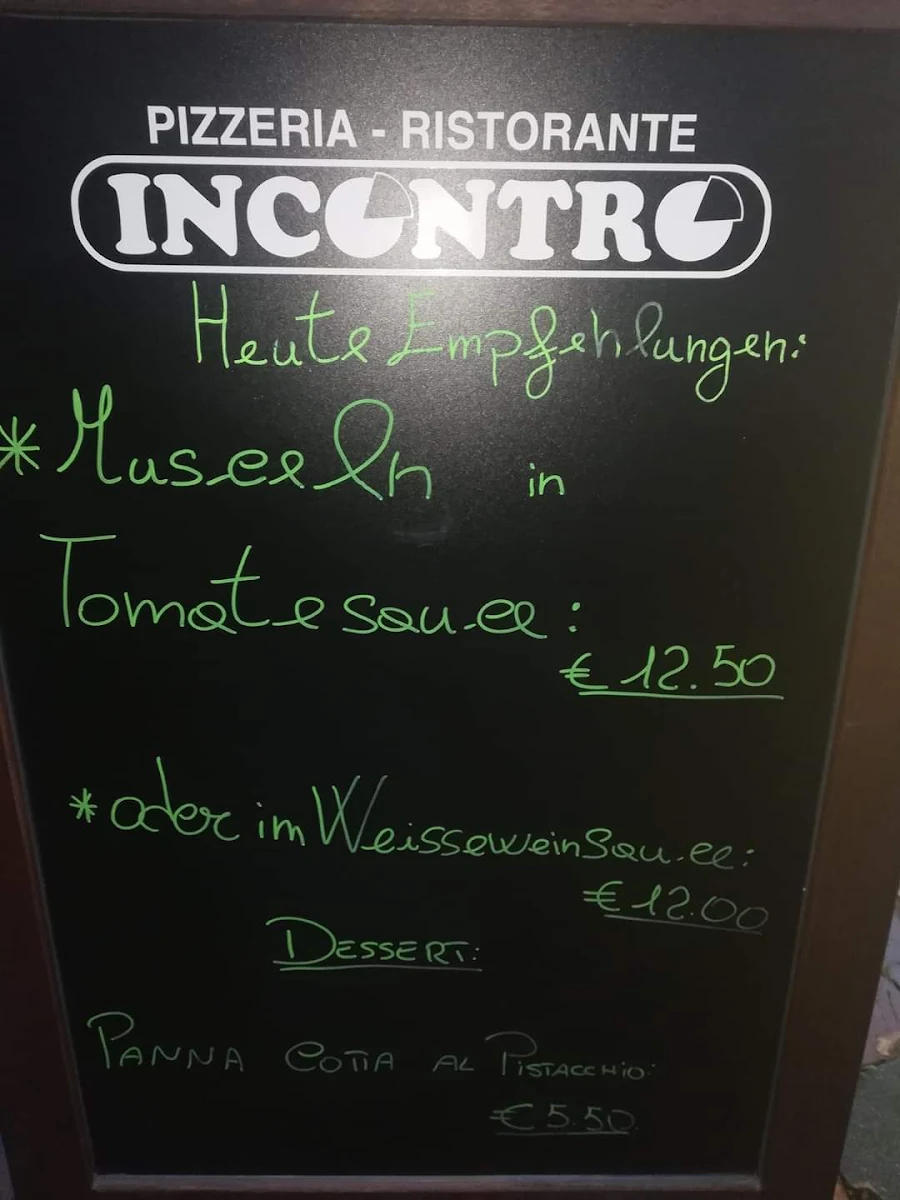 PIZZERIA - RISTORANTE
INCONTRO
Heute Empfehlungen:
*Musceln in
Tomatesauce:
€ 12.50
*oder im Weisseweinsauce:
€12.00
DESSERT:
PANNA COTTA AL PISTACCHIO:
€5.50